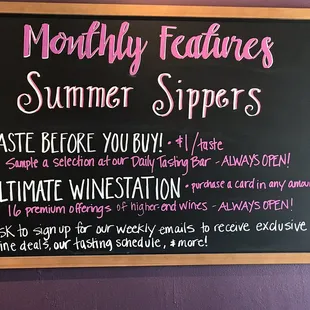 Monthly Features
Summer Sippers
ASTE BEFORE YOU BUY! • $1/taste
Sample a selection at our Daily Tasting Bar - ALWAYS OPEN!
LTIMATE WINESTATION • purchase a card in any amou
16 premium offerings of higher-end wines - ALWAYS OPEN!
SK to sign up for our weekly emails to receive exclusive
ine deals, our tasting schedule, & more!